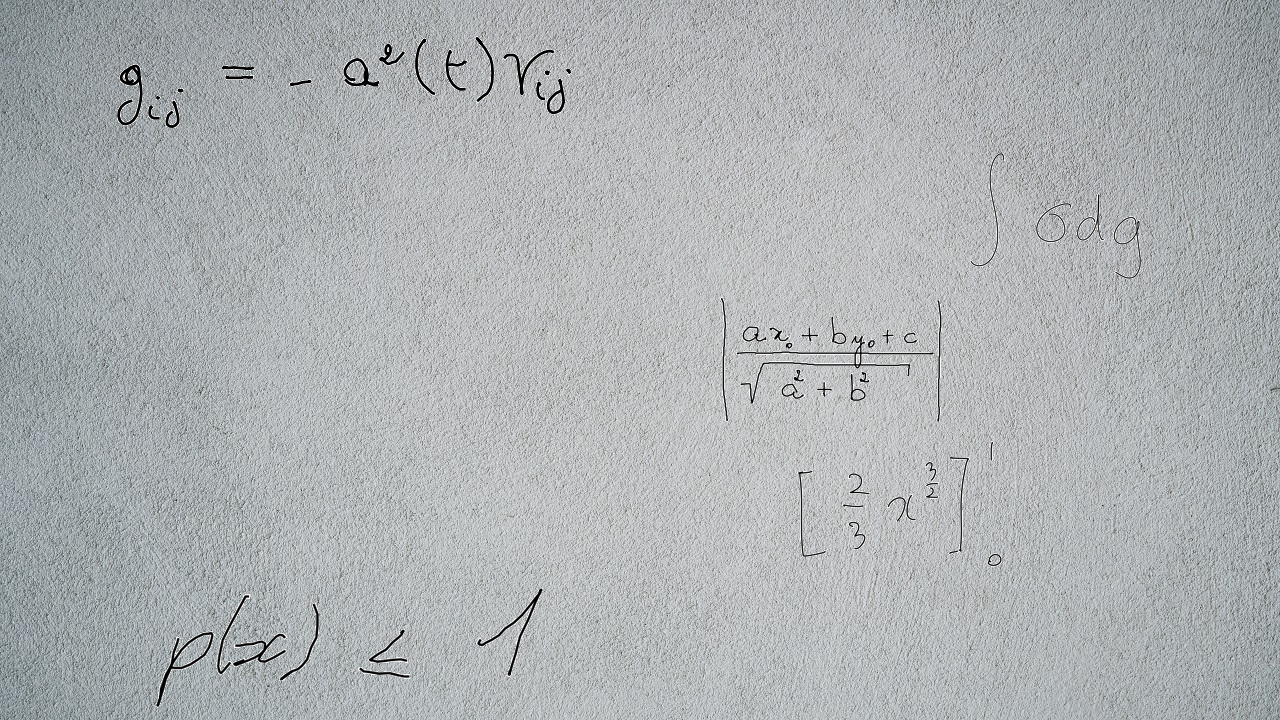 g_{ij} = - a^2(t) γ_{ij}
∫ σ d g
\left| \frac{ax_0 + by_0 + c}{\sqrt{a^2 + b^2}} \right|
\left[ \frac{2}{3} x^{\frac{3}{2}} \right]_0^1
p(x) ≤ 1